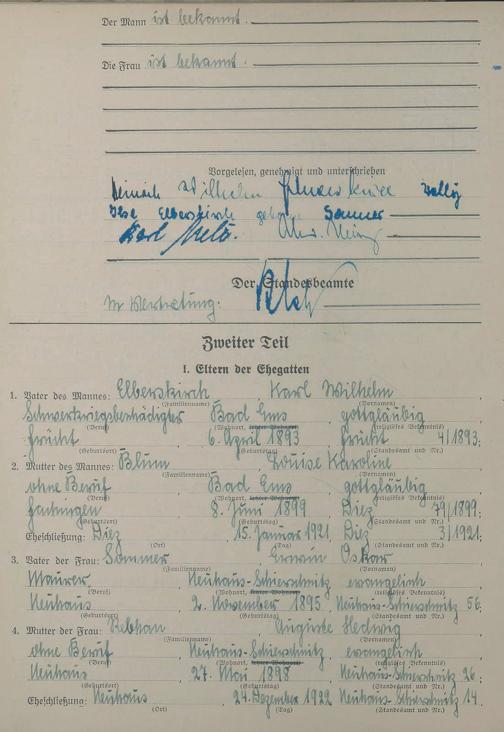 Der Mann ist bekannt.
Die Frau ist bekannt.
Vorgelesen, genehmigt und unterschrieben
Heinrich Wilhelm Elberskirch
Ilse Elberskirch geb. Sommer
Karl
Der Standesbeamte
In Vertretung:
Zweiter Teil
I. Eltern der Ehegatten
1. Vater des Mannes: Elberskirch Karl Wilhelm
(Familienname) (Vornamen)
Schwerkriegsbeschädigter, Bad Ems, gottgläubig
(Beruf) (Wohnort, letzter Wohnort) (religiöses Bekenntnis)
Frücht, 6. April 1893, Frücht 4/1893;
(Geburtsort) (Geburtstag) (Standesamt und Nr.)
2. Mutter des Mannes: Blum Louise Karoline
(Familienname) (Vornamen)
ohne Beruf, Bad Ems, gottgläubig
(Beruf) (Wohnort, letzter Wohnort) (religiöses Bekenntnis)
8. Juni 1899, Diez 79/1899;
(Geburtsort) (Geburtstag) (Standesamt und Nr.)
Eheschließung: Diez, 15. Januar 1921, Diez 3/1921;
(Ort) (Tag) (Standesamt und Nr.)
3. Vater der Frau: Sommer Erwin Oskar
(Familienname) (Vornamen)
Maurer, Neuhaus-Schierschnitz, evangelisch
(Beruf) (Wohnort, letzter Wohnort) (religiöses Bekenntnis)
Neuhaus, 2. November 1895, Neuhaus-Schierschnitz 56;
(Geburtsort) (Geburtstag) (Standesamt und Nr.)
4. Mutter der Frau: Rebhan Auguste Hedwig
(Familienname) (Vornamen)
ohne Beruf, Neuhaus-Schierschnitz, evangelisch
(Beruf) (Wohnort, letzter Wohnort) (religiöses Bekenntnis)
Neuhaus, 27. Mai 1898, Neuhaus-Schierschnitz 26;
(Geburtsort) (Geburtstag) (Standesamt und Nr.)
Eheschließung: Neuhaus, 24. Dezember 1922, Neuhaus-Schierschnitz 14.
(Ort) (Tag) (Standesamt und Nr.)